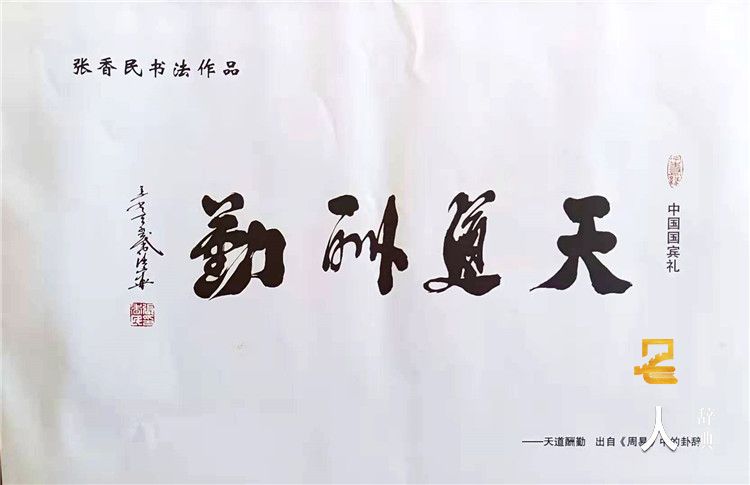 张香民书法作品
中国国宾礼
天道酬勤
——天道酬勤 出自《周易》中的卦辞
名人
辞典